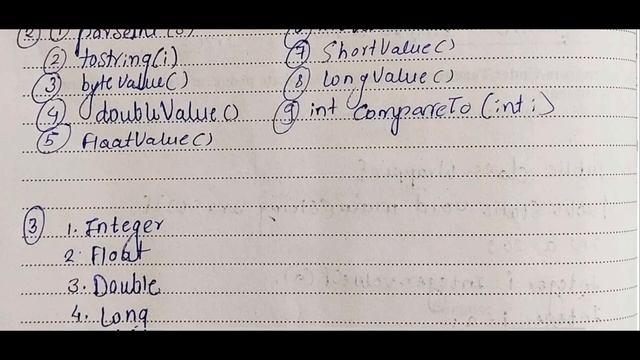 ② ① parseInt(s)
② tostring(i)
③ byteValue()
④ doubleValue()
⑤ FloatValue()
⑦ ShortValue()
⑧ LongValue()
⑨ int CompareTo(int i)
③ 1. Integer
2. Float
3. Double
4. Long